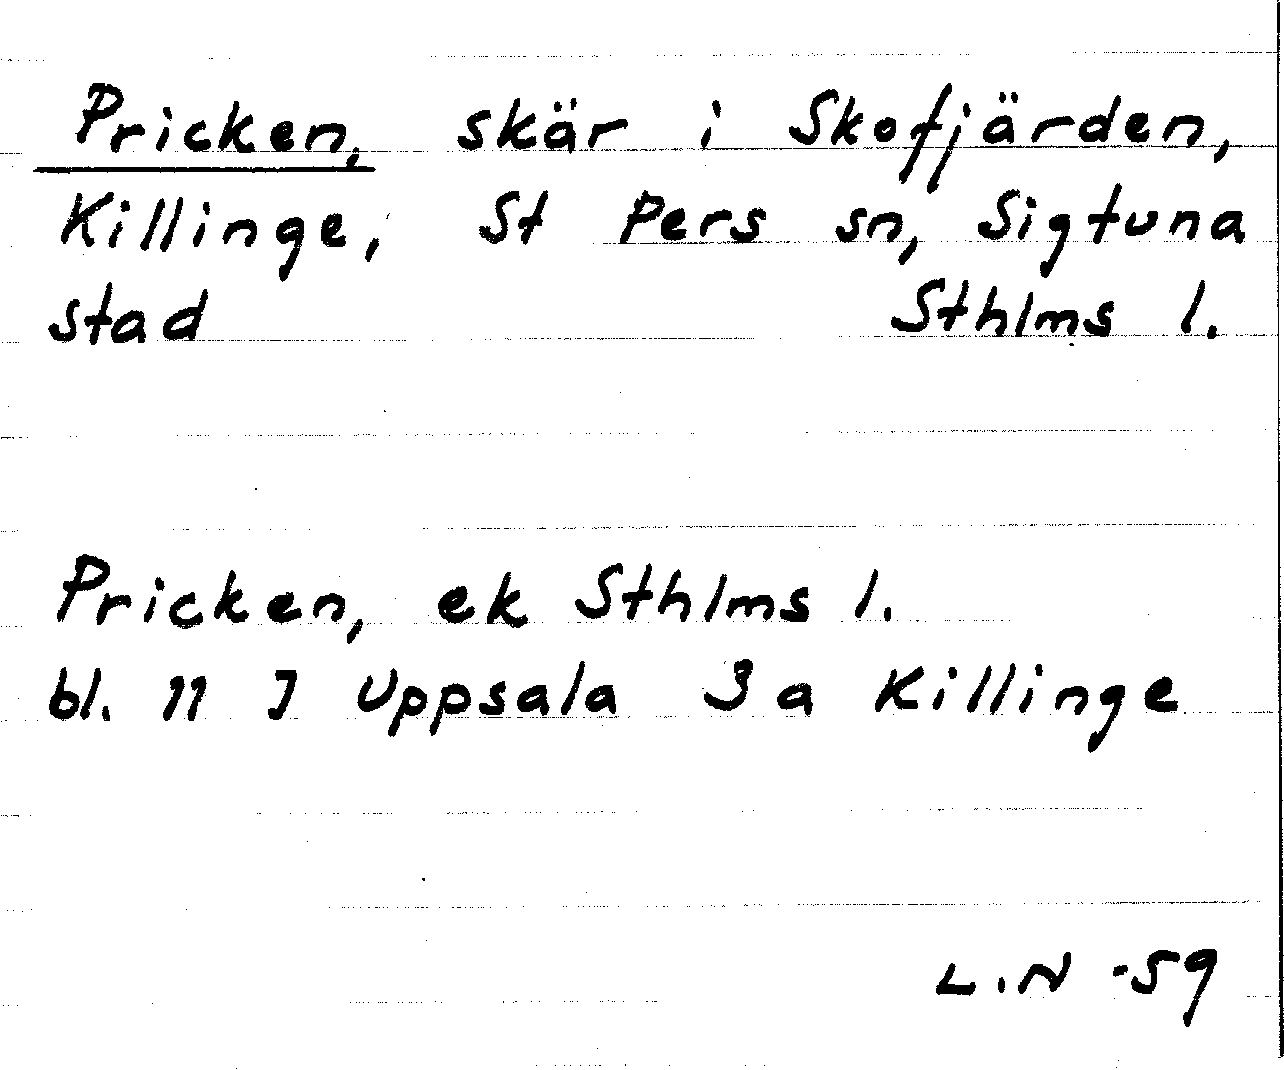 Pricken, skär i Skofjärden,
Killinge, St Pers sn, Sigtuna
stad Sthlms l.
Pricken, ek Sthlms l.
bl. 11 J Uppsala 3a Killinge
L.N -59